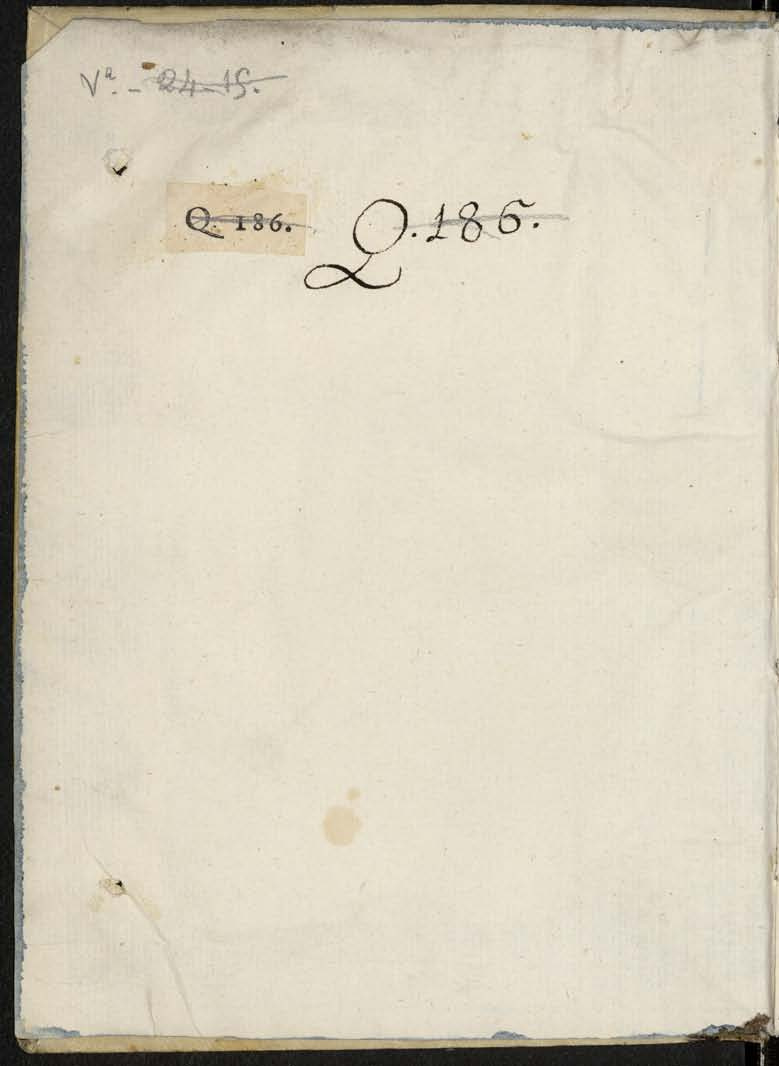 Vª. - 24-15.
Q. 186.
Q. 186.